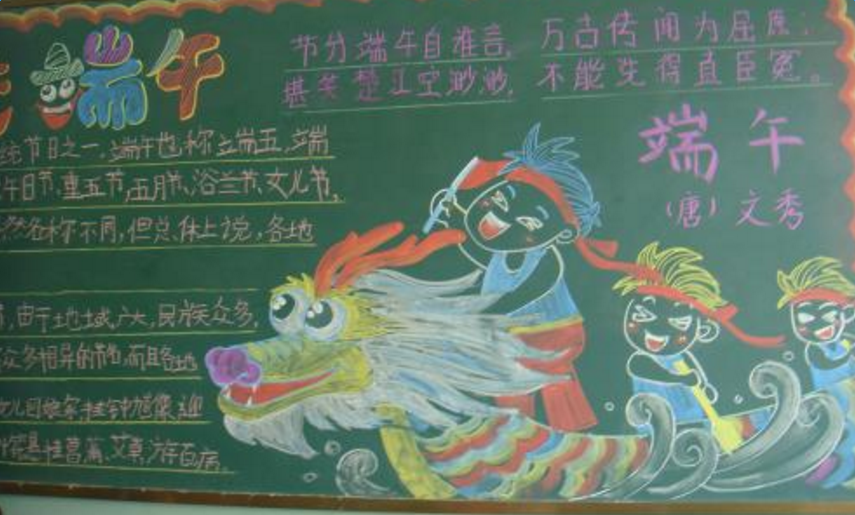 端午
节分端午自谁言,万古传闻为屈原;
堪笑楚江空渺渺,不能洗得直臣冤。
端午
(唐)文秀
统节日之一,端午也称立端五,端
午日节,重五节,五月节,浴兰节,女儿节,
然名称不同,但总体上说,各地
,由于地域广大,民族众多,
众多相异的节名,而且各地
女儿回娘家,挂钟馗像,迎
挂菖蒲、艾草,游百病。